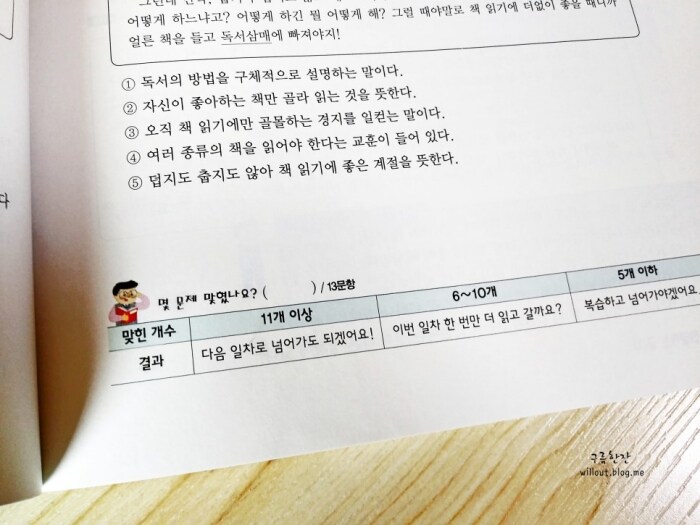 어떻게 하느냐고? 어떻게 하긴 뭘 어떻게 해? 그럴 때야말로 책 읽기에 더없이 좋을 때니까
얼른 책을 들고 독서삼매에 빠져야지!
① 독서의 방법을 구체적으로 설명하는 말이다.
② 자신이 좋아하는 책만 골라 읽는 것을 뜻한다.
③ 오직 책 읽기에만 골몰하는 경지를 일컫는 말이다.
④ 여러 종류의 책을 읽어야 한다는 교훈이 들어 있다.
⑤ 덥지도 춥지도 않아 책 읽기에 좋은 계절을 뜻한다.
다
몇 문제 맞혔나요? ( ) / 13문항
맞힌 개수 11개 이상 6~10개 5개 이하
결과 다음 일차로 넘어가도 되겠어요! 이번 일차 한 번만 더 읽고 갈까요? 복습하고 넘어가야겠어요
구름한잔
willout.blog.me